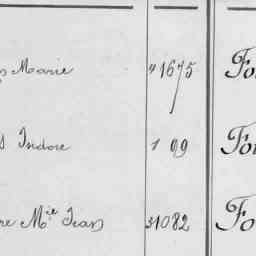 Marie 41675 Fo
Isidore 1 99 Fo
re Mie Jean 31082 Fo